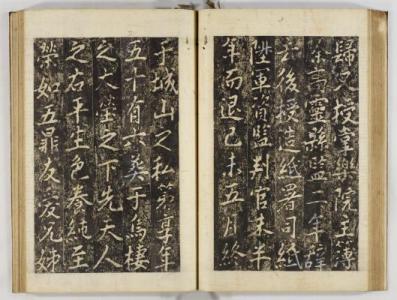 歸又授掌樂院主簿
除靈縣監二年辞
去後授造紙署司紙
陞軍資監判官未半
年而退己未五月終
于城山之私第享年
五十有六葬于烏棲
之大塋之下先夫人
之右平生色養純至
榮如五鼎友愛兄姊